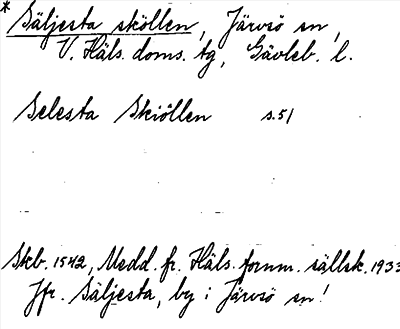 * Säljesta sköllen, Järvsö sn,
V. Häls. doms. tg, Gävleb. l.
Selesta Skiöllen s. 51
Skb. 1542, Medd. fr. Häls. fornm. sällsk. 1933
Jfr. Säljesta, by i Järvsö sn!